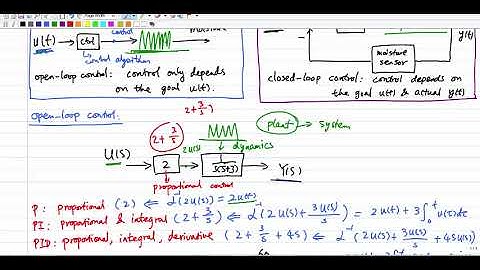 control
u(t) → ctrl
↳ control algorithm
open-loop control: control only depends
on the goal u(t).
y(t)
moisture
sensor
closed-loop control: control depends on
the goal u(t) & actual y(t)
2+ 3/s
open-loop control:
2+ 3/s
plant → system
2U(s)
dynamics
U(s) → 2 → → Y(s)
proportional control
P: proportional (2) ⇐ L⁻¹(2U(s)) = 2u(t)
PI: proportional & integral (2+ 3/s) ⇐ L⁻¹(2U(s) + 3U(s)/s) = 2u(t) + 3∫₀ᵗ u(τ)dτ
PID: proportional, integral, derivative (2+ 3/s + 4s) ⇐ L⁻¹(2U(s) + 3U(s)/s + 4sU(s))